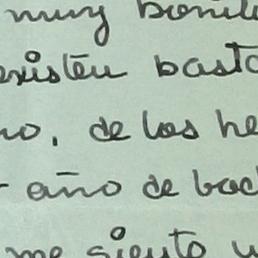 muy bonit
existen basta
no, de los he
año de bac
me siento u